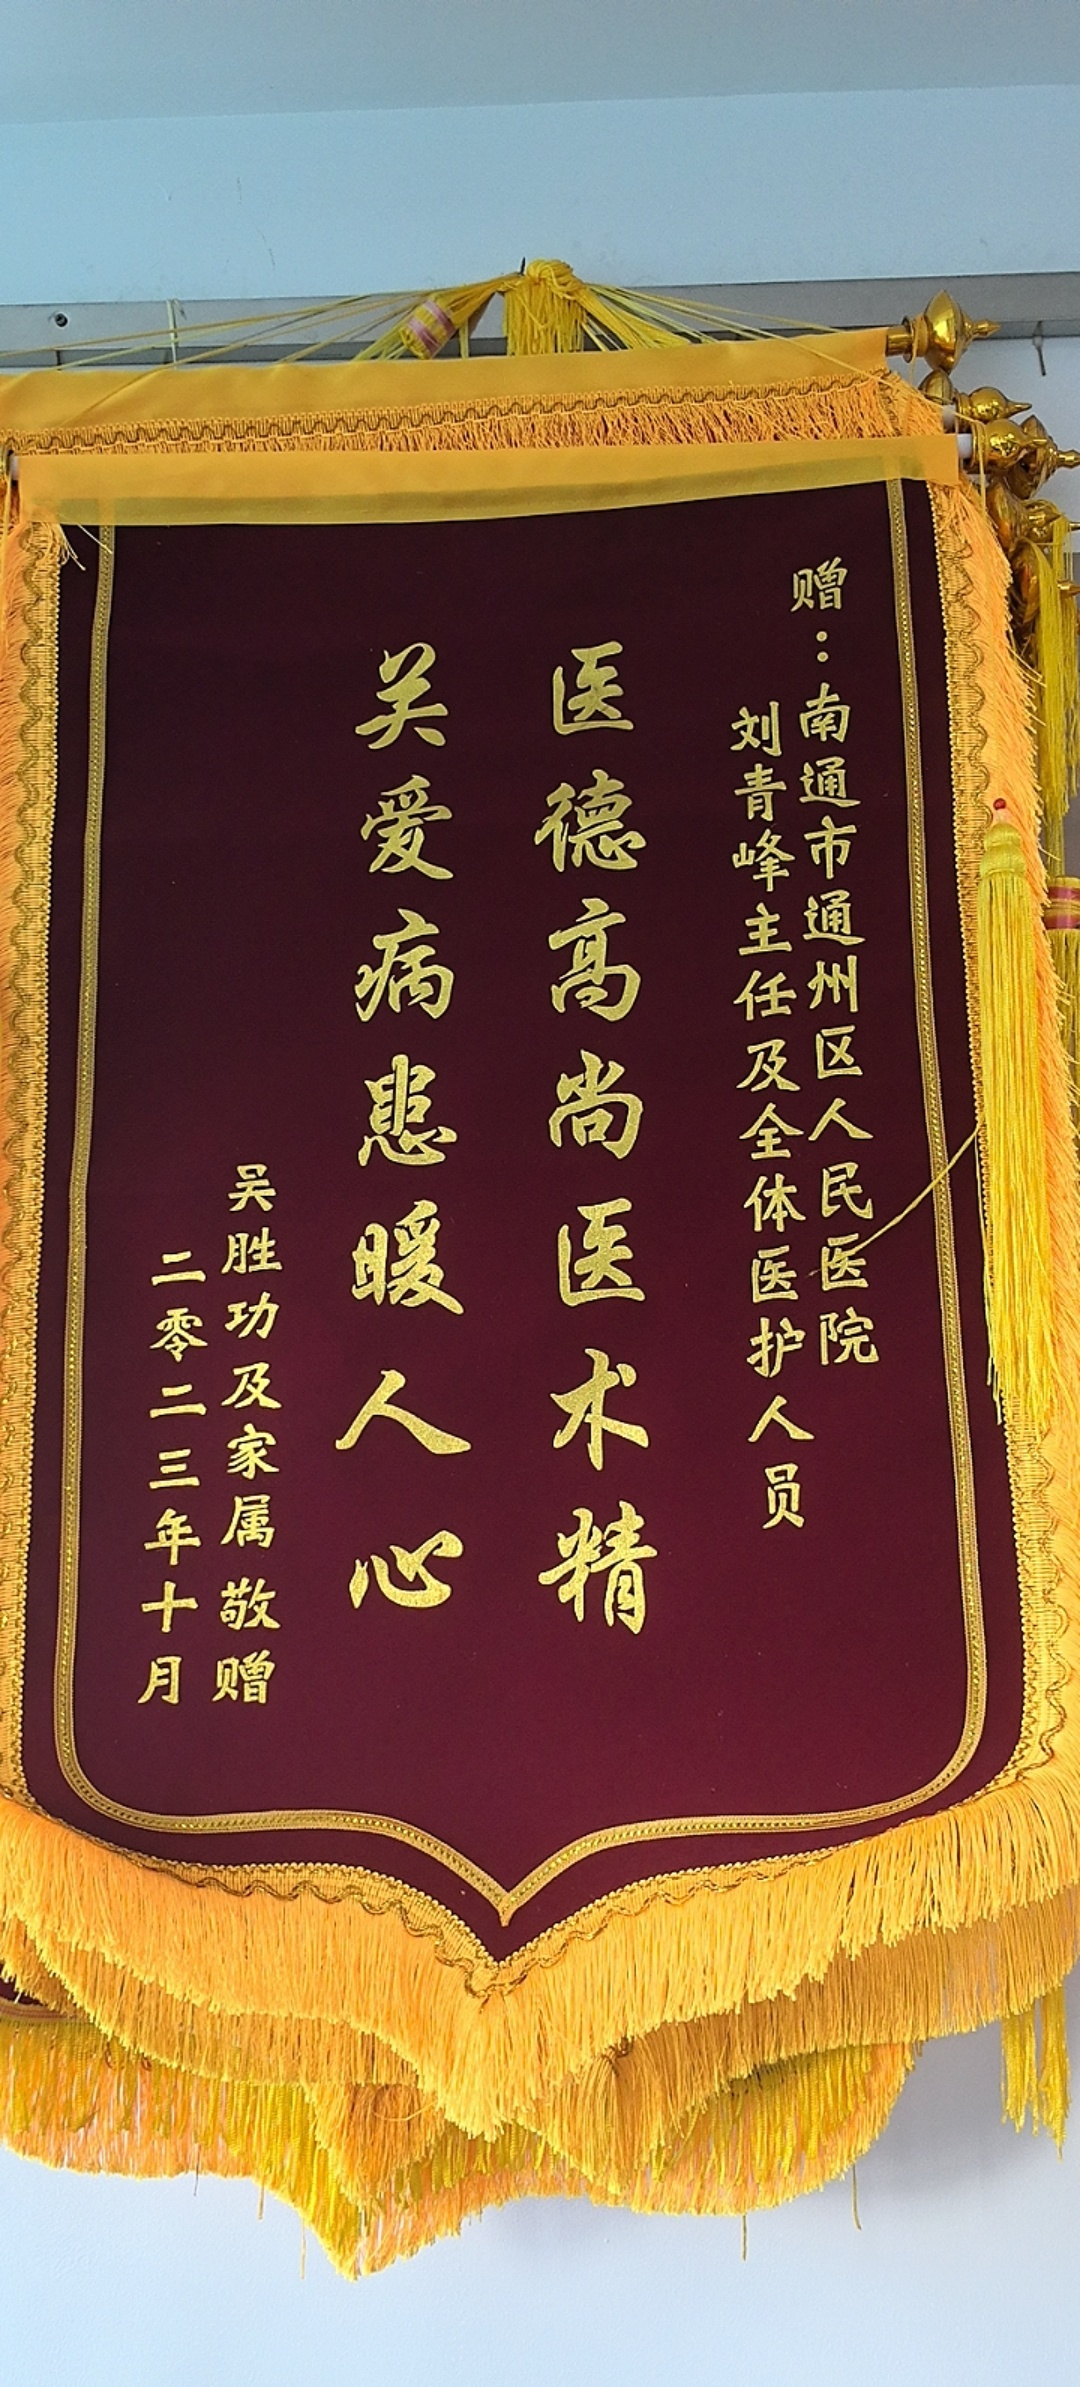 赠：南通市通州区人民医院
刘青峰主任及全体医护人员
医德高尚医术精
关爱病患暖人心
吴胜功及家属敬赠
二零二三年十月